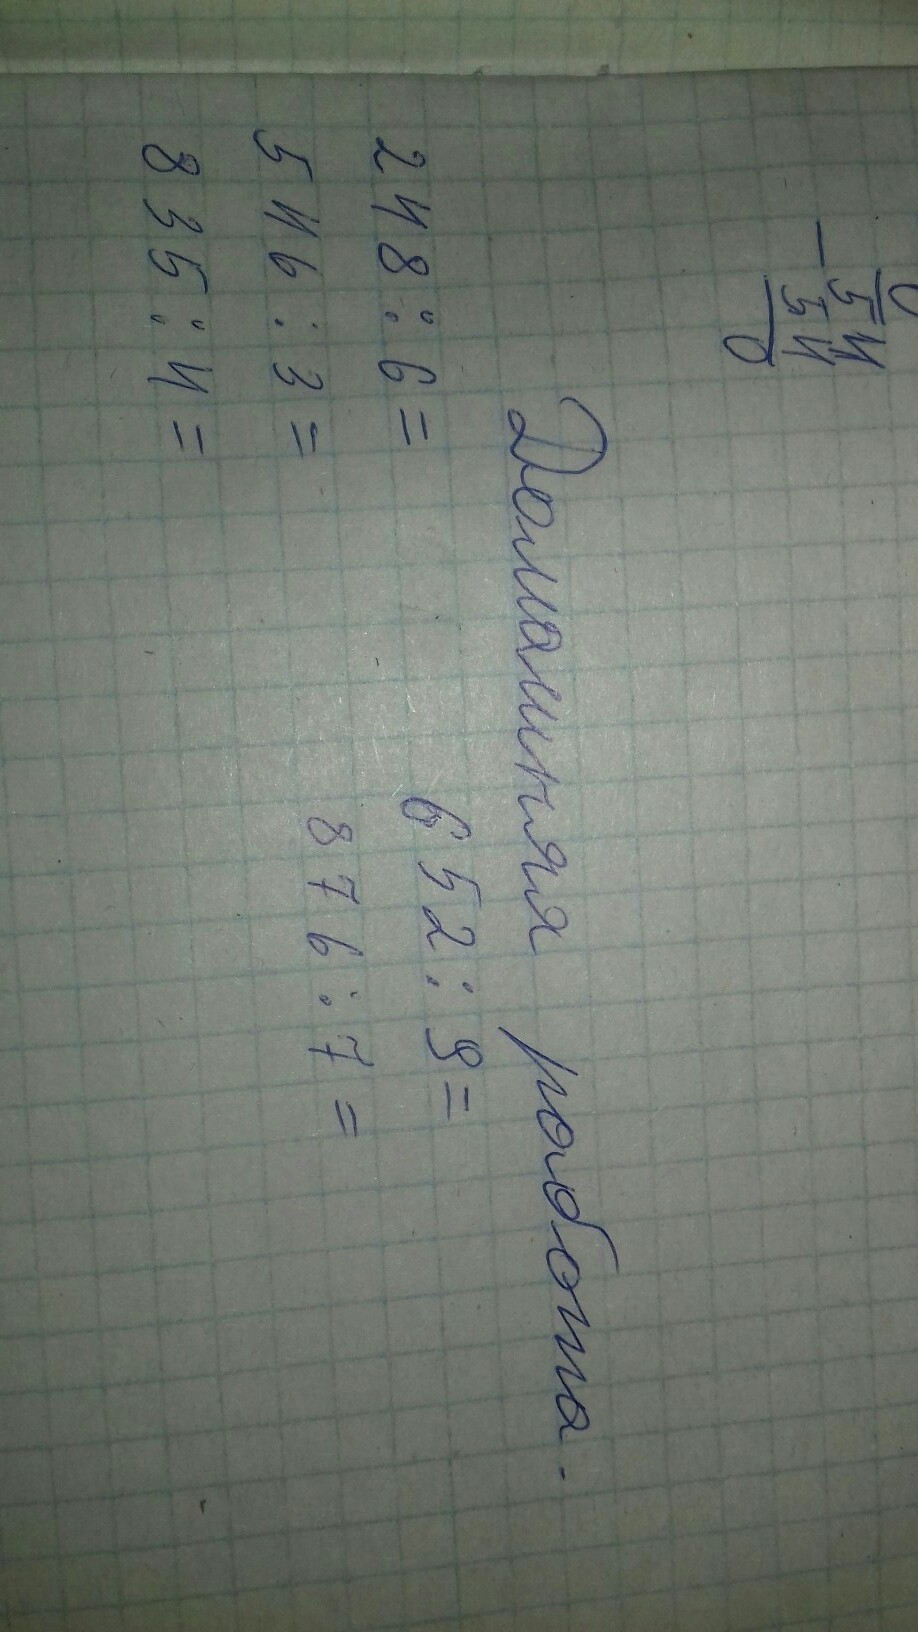 0
54
- 54
0
Домашняя работа.
248:6=
652:9=
546:3=
876:7=
835:4=